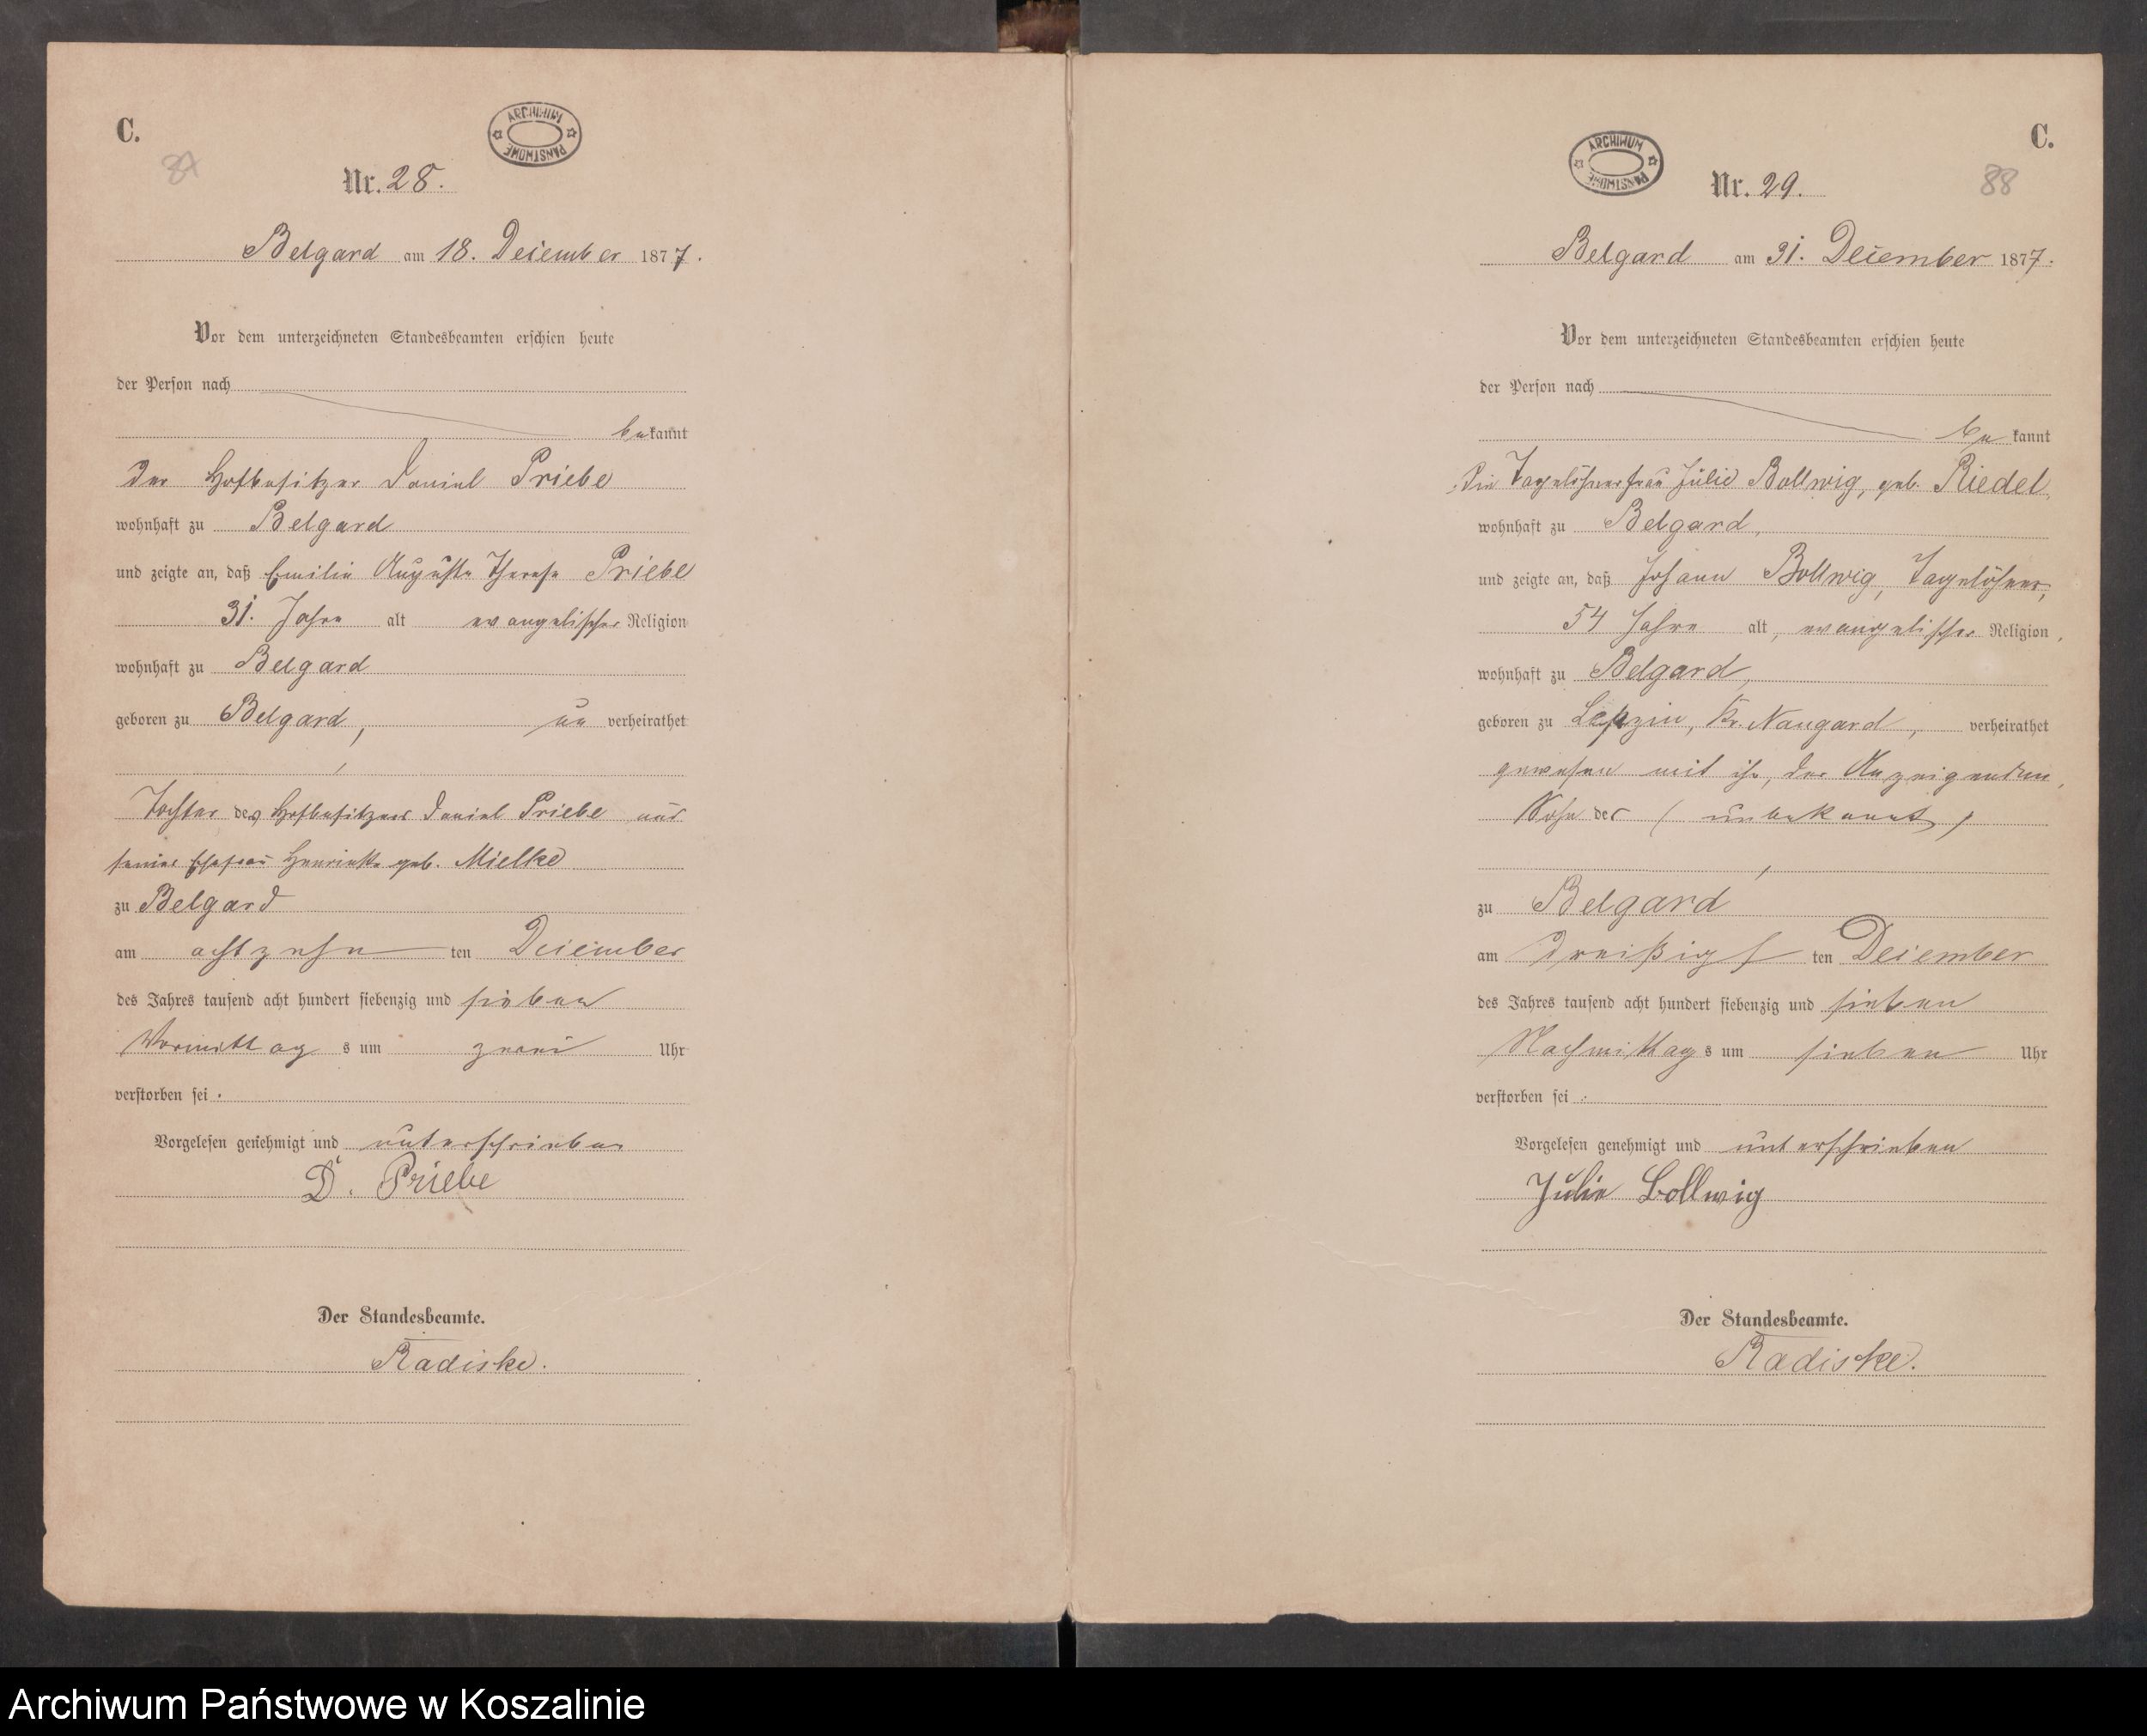 C.
ARCHIWUM PAŃSTWOWE
87
Nr. 28.
Belgard am 18. Dezember 1877.
Vor dem unterzeichneten Standesbeamten erschien heute
der Person nach
bekannt
der Hofbesitzer Daniel Priebe
wohnhaft zu Belgard
und zeigte an, daß Emilie Auguste Therese Priebe
31. Jahre alt evangelischer Religion
wohnhaft zu Belgard
geboren zu Belgard, un verheirathet
Tochter des Hofbesitzers Daniel Priebe und
seiner Ehefrau Henriette geb. Mielke
zu Belgard
am achtzehn ten Dezember
des Jahres tausend acht hundert siebenzig und sieben
Vormittag s um zwei Uhr
verstorben sei.
Vorgelesen genehmigt und unterschrieben
D. Priebe
Der Standesbeamte.
Radiske.
C.
ARCHIWUM PAŃSTWOWE
88
Nr. 29.
Belgard am 31. Dezember 1877.
Vor dem unterzeichneten Standesbeamten erschien heute
der Person nach
be kannt
die Tagelöhnerfrau Julie Bollwig, geb. Riedel,
wohnhaft zu Belgard,
und zeigte an, daß Johann Bollwig, Tagelöhner,
54 Jahre alt, evangelischer Religion,
wohnhaft zu Belgard,
geboren zu Kr. Naugard, verheirathet
gewesen mit ihr, der Anzeigenden,
Sohn der (unbekannt)
zu Belgard
am dreißigs ten Dezember
des Jahres tausend acht hundert siebenzig und sieben
Nachmittag s um sieben Uhr
verstorben sei.
Vorgelesen genehmigt und unterschrieben
Julie Bollwig
Der Standesbeamte.
Radiske.
Archiwum Państwowe w Koszalinie